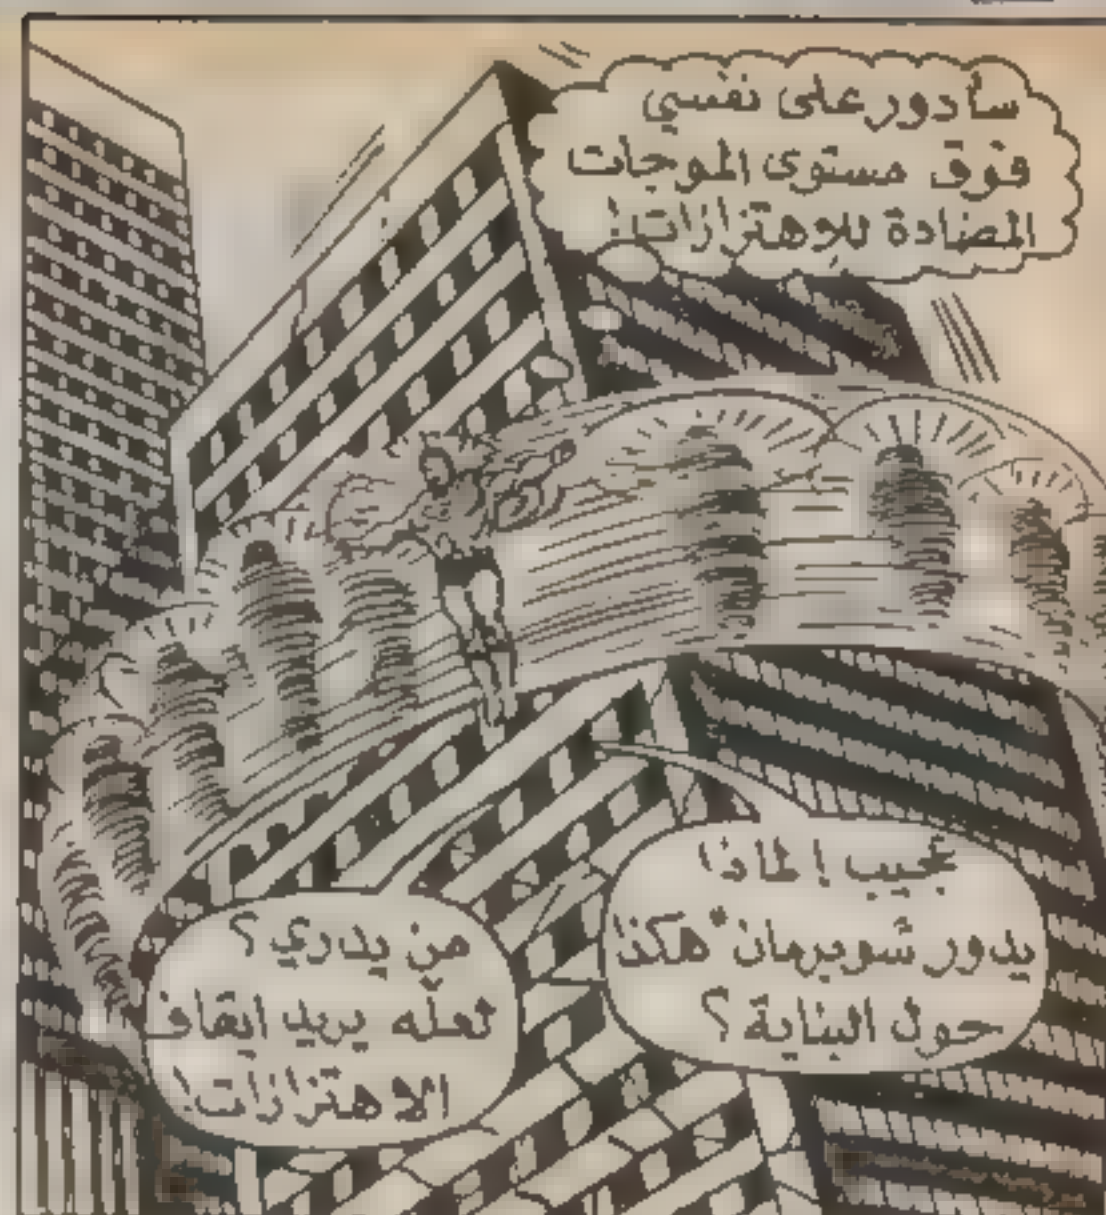 سأدور على نفسي
فوق مستوى الموجات
المضادة للإهتزازات!
عجيب! لماذا
يدور "سوبرمان" هكذا
حول البناية؟
من يدري؟
لعلّه يريد ايقاف
الاهتزازات!